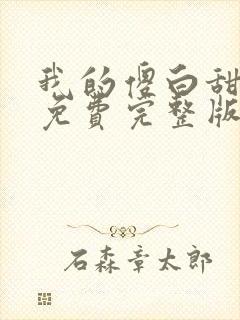 我的傻白甜
免费完整版
石森章太郎